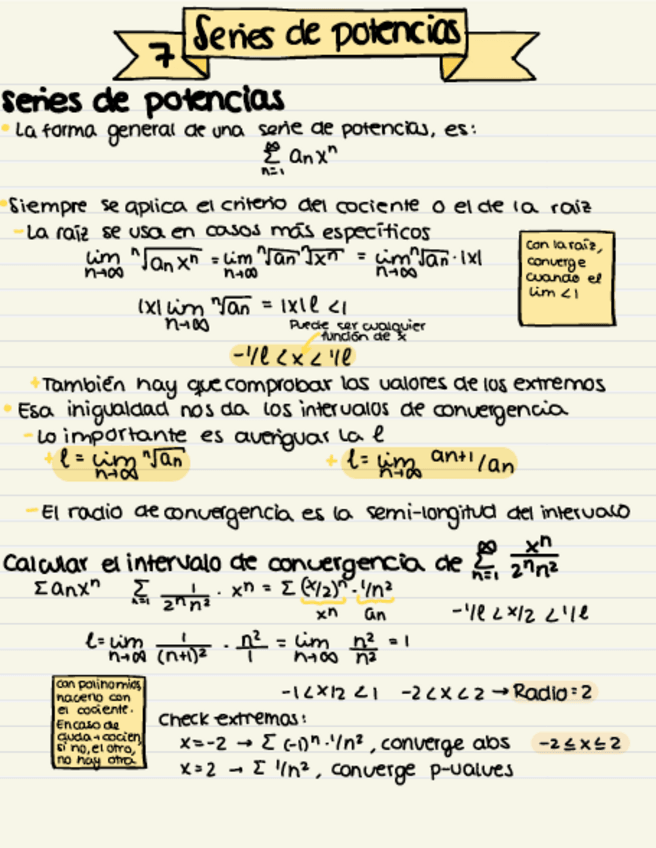 7 Series de potencias
Series de potencias
• La forma general de una serie de potencias, es:
∞ Σ n=1 anxⁿ
• Siempre se aplica el criterio del cociente o el de la raíz
- La raíz se usa en casos más específicos
lim n→∞ ⁿ√anxⁿ = lim n→∞ ⁿ√an ⁿ√xⁿ = lim n→∞ ⁿ√an · |x|
con la raíz,
converge
cuando el
lim < 1
|x| lim n→∞ ⁿ√an = |x| ℓ < 1
Puede ser cualquier
función de x
-1/ℓ < x < 1/ℓ
+ También hay que comprobar los valores de los extremos
• Esa inigualdad nos da los intervalos de convergencia
- Lo importante es averiguar la ℓ
+ ℓ = lim n→∞ ⁿ√an + ℓ = lim n→∞ an+1/an
- El radio de convergencia es la semi-longitud del intervalo
Calcular el intervalo de convergencia de ∞ Σ n=1 xⁿ/2ⁿn²
Σ anxⁿ Σ n=1 1/2ⁿn² · xⁿ = Σ (x/2)ⁿ · 1/n²
xⁿ an -1/ℓ < x/2 < 1/ℓ
ℓ = lim n→∞ 1/(n+1)² · n²/1 = lim n→∞ n²/n² = 1
-1 < x/2 < 1 -2 < x < 2 → Radio = 2
con polinomios
hacerlo con
el cociente.
En caso de
duda → cocien,
si no, el otro,
no hay otra
Check extremos:
x = -2 → Σ (-1)ⁿ · 1/n², converge abs -2 ≤ x ≤ 2
x = 2 → Σ 1/n², converge p-values